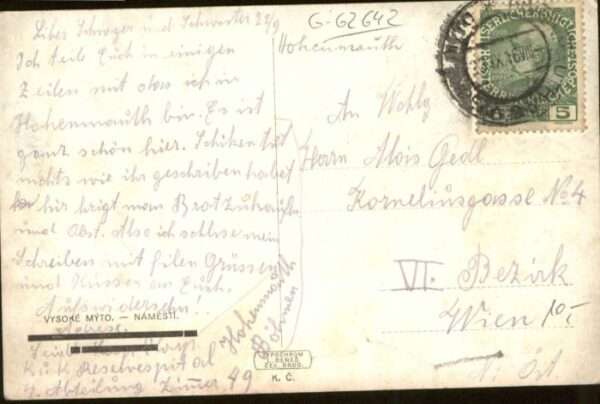 Libes Schwager und Schwester 22/9
Ich teile Euch in einigen
Zeilen mit dass ich in
Hohenmauth bin. Es ist
ganz schön hier. Schiken tut
nichts wie ihr geschrieben habet
hir krigt man Brot zu kaufen
und Obst. Also ich schlise mein
Schreiben mit filen Grüssen
und Küssen an Euch.
Aufswidersehn!
VYSOKÉ MÝTO. — NÁMĚSTÍ.
Adresse
K.u.K. Reservespital
4. Abteilung Zimmer 49
Hohenmauth
Böhmen
G-62642
Hohenmauth
An Wohlg
Herrn Alois Gedl
Korneliusgasse No 4
VI. Bezirk
Wien
N. Öst.
5
K. Č.